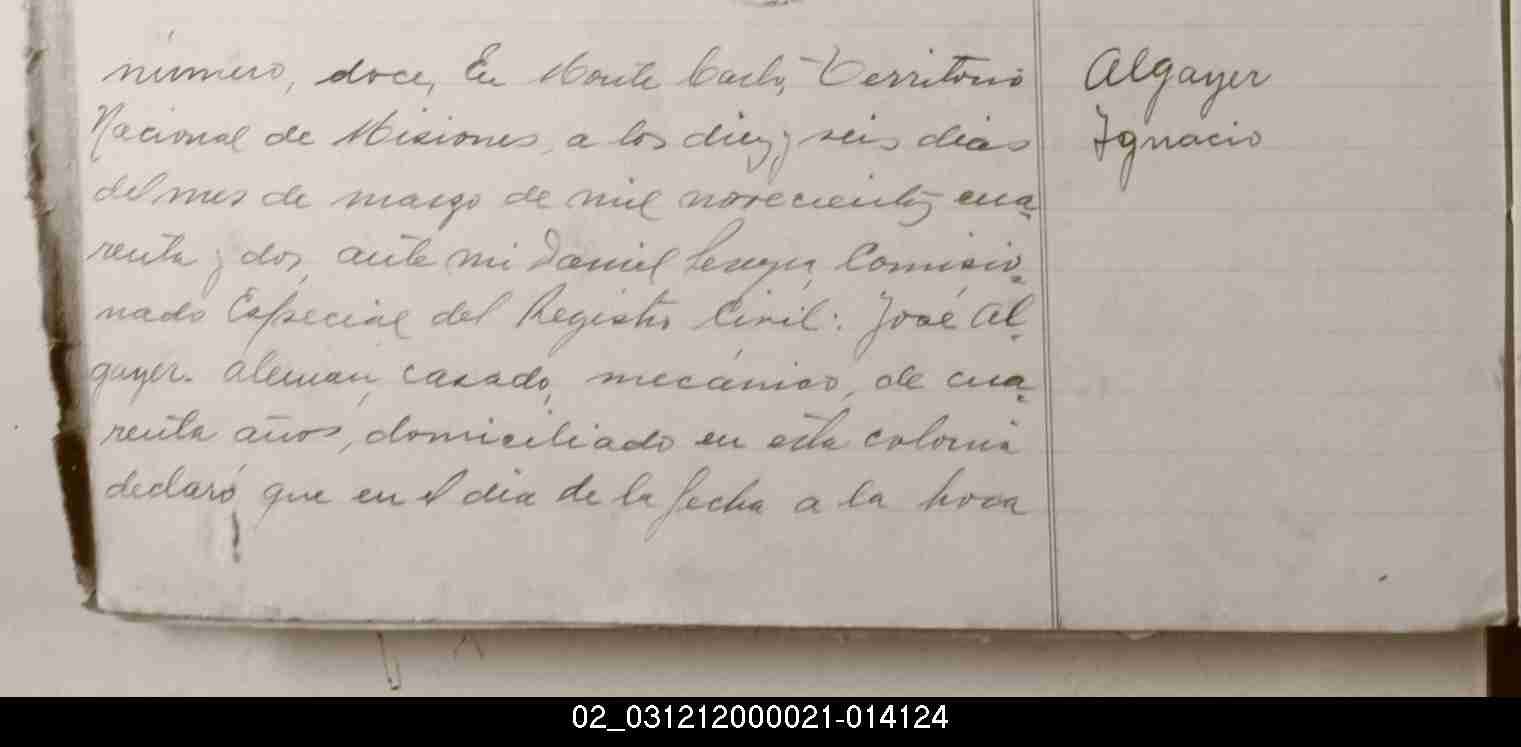 número, doce, En Monte Carlo, Territorio
Nacional de Misiones, a los diez y seis dias
del mes de marzo de mil novecientos cua-
renta y dos, ante mi Daniel Comisio-
nado Especial del Registro Civil: José Al-
gayer. aleman, casado, mecánico, de cua-
renta años, domiciliado en esta colonia
declaró que en el dia de la fecha a la hora
Algayer
Ignacio
02_031212000021-014124